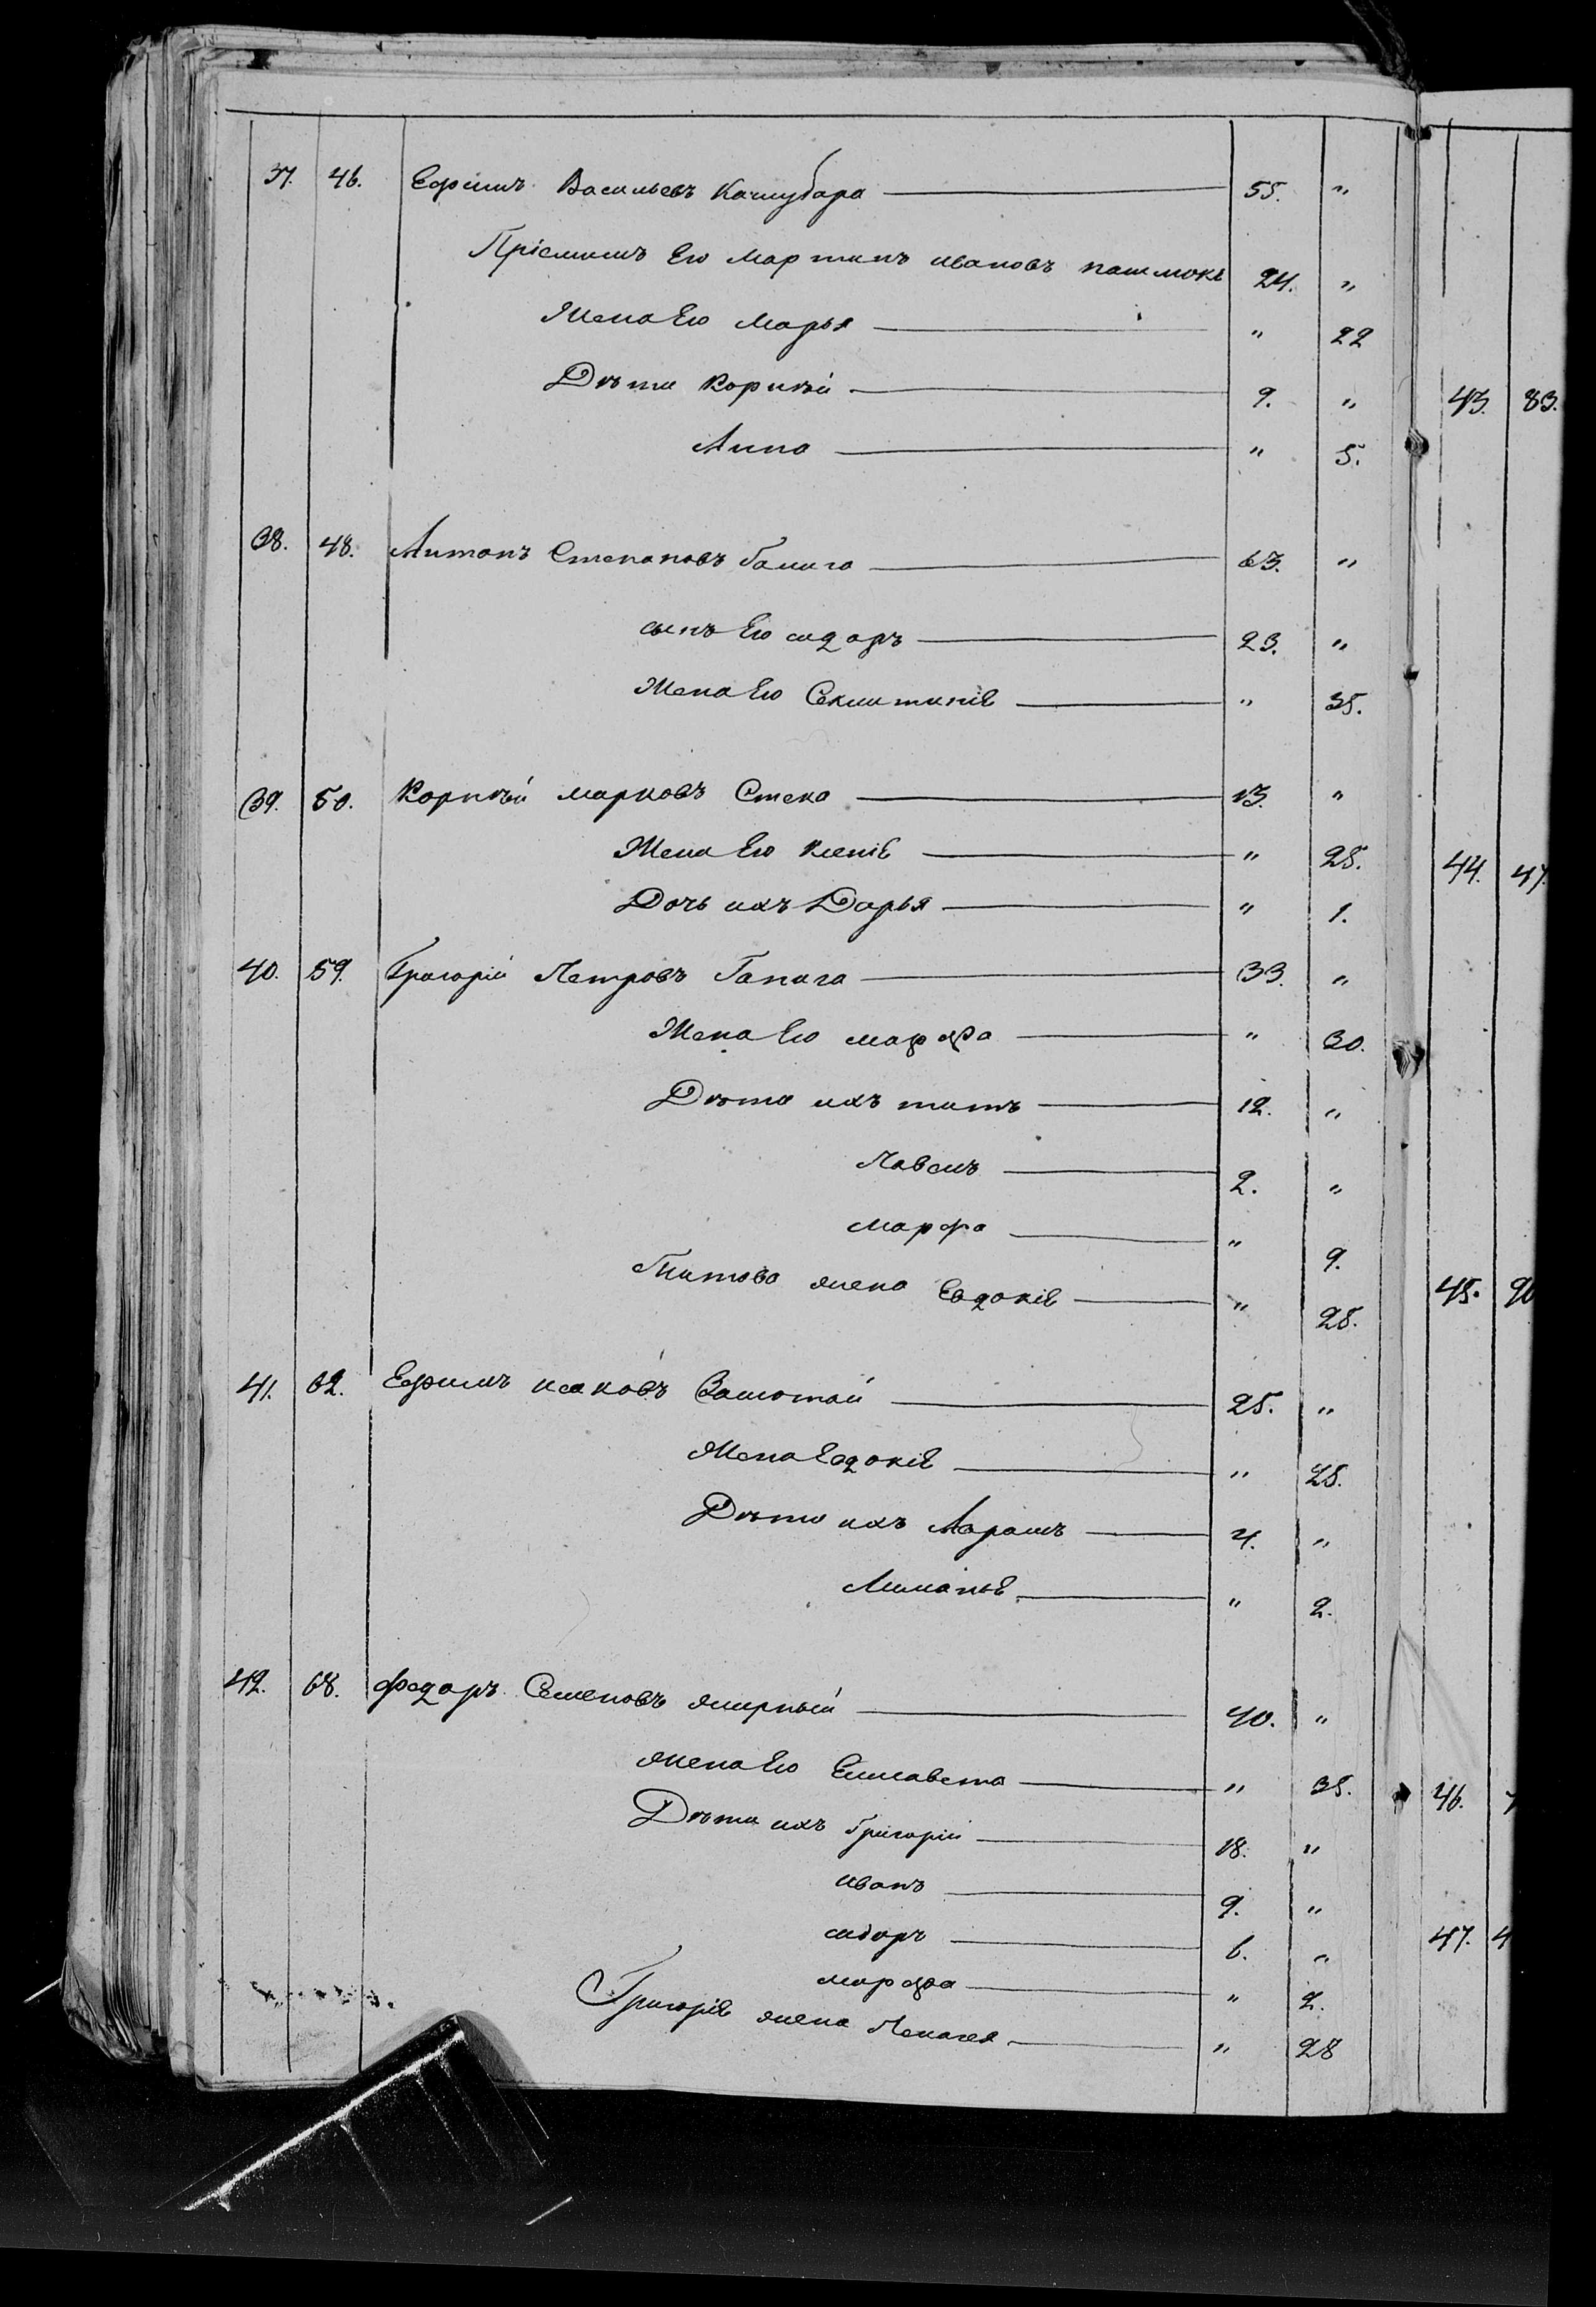 37. 46. Ефимъ Васильевъ Качмубара 55. "
Пріемышъ Его Мартинъ ивановъ 24. "
Жена Его Марья " 22
Дѣти Корнѣй 9. "
Анна " 5.
38. 48. Антонъ Степановъ Ганига 63. "
сынъ Его сидоръ 23. "
Жена Его " 35.
39. 50. Корнѣй марковъ Стека 13. "
Жена Его Ксеніѣ " 25.
Дочь ихъ Дарья " 1.
40. 59. Григорій Петровъ Ганага 33. "
Жена Его марфа " 30.
Дѣти ихъ титъ 12. "
Павелъ 2. "
марфа " 9.
Титова жена Евдокіѣ " 28.
41. 62. Ефимъ исаковъ Золотой 25. "
Жена Евдокіѣ " 25.
Дѣти ихъ 4. "
" 2.
42. 68. Федоръ Семеновъ жирный 40. "
жена Его Елисавета " 35.
Дѣти ихъ Григорій 18. "
иванъ 9. "
сидоръ 6. "
марфа " 2.
Григоріѣ жена Пелагея " 28
43. 83.
44. 47.
45. 90
46.
47. 4